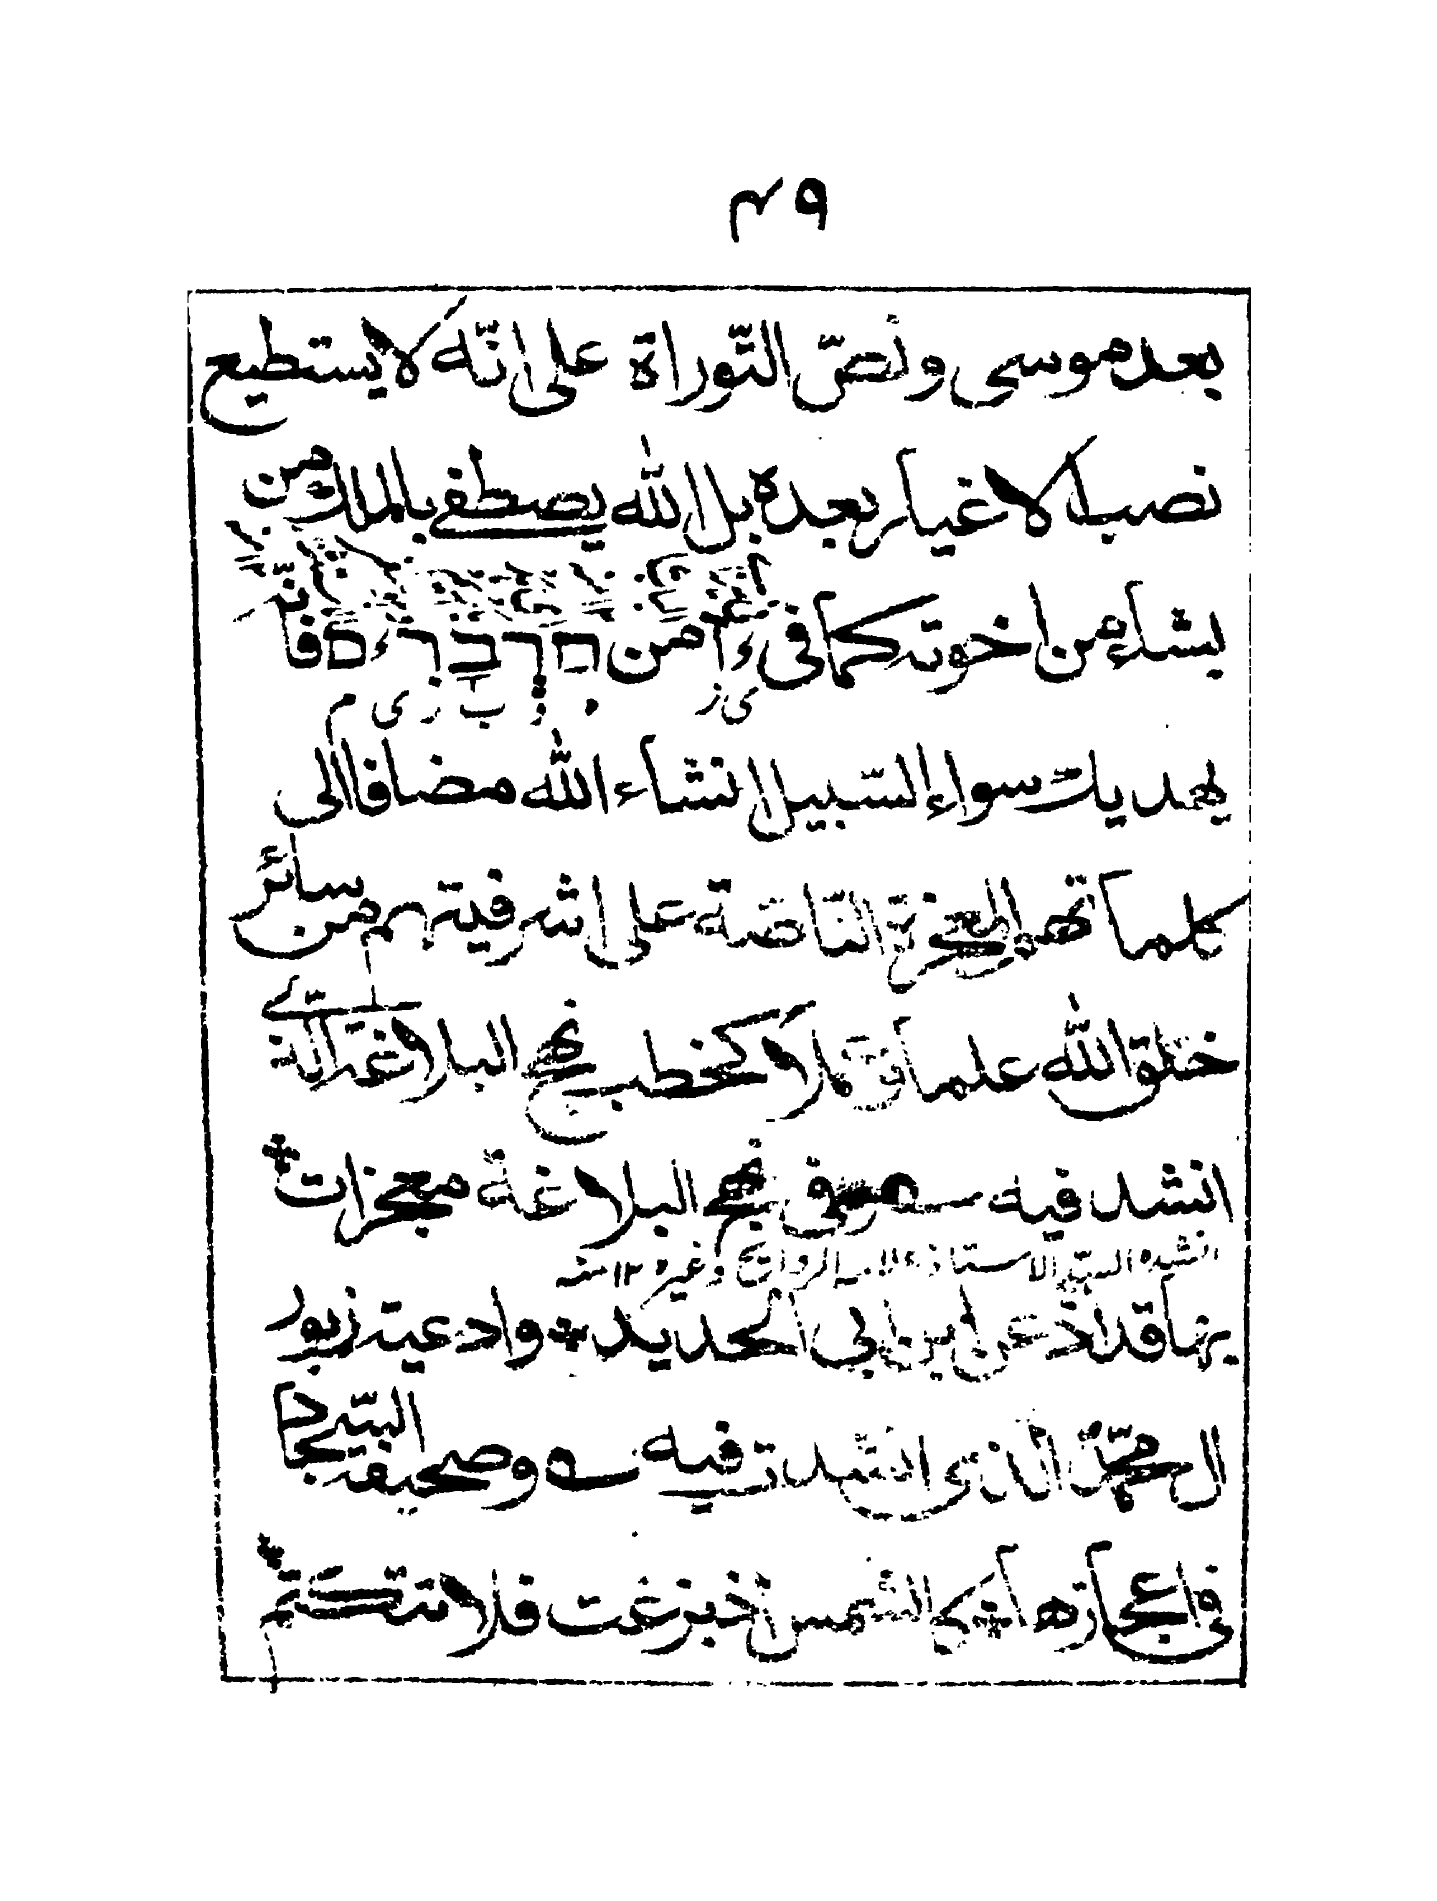 ٤٩
بعد موسى ونصّ التّوراة على انّه لا يستطيع
نصب الاغيار بعده بل الله يصطفى بالملك من
يشاء من اخوته كما فى من דברים فانّه
ى ز و ب ر ى م
يهديك سواء السّبيل انشاء الله مضافا الى
كلماتهم المعجزة النّاصّة على اشرفيتهم من سائر
خلق الله علما وعملا كخطب نهج البلاغة الّتى
انشد فيه فى نهج البلاغة معجزات
انشده السيّد الاستاذ وغيره ١٢ منه
بها قد اذعن ابن ابى الحديد وادعية زبور
ال محمّد الذى انشدت فيه وصحيفة السّجاد
فى اعجازها كالشّمس اذ بزغت فلا تتكتم